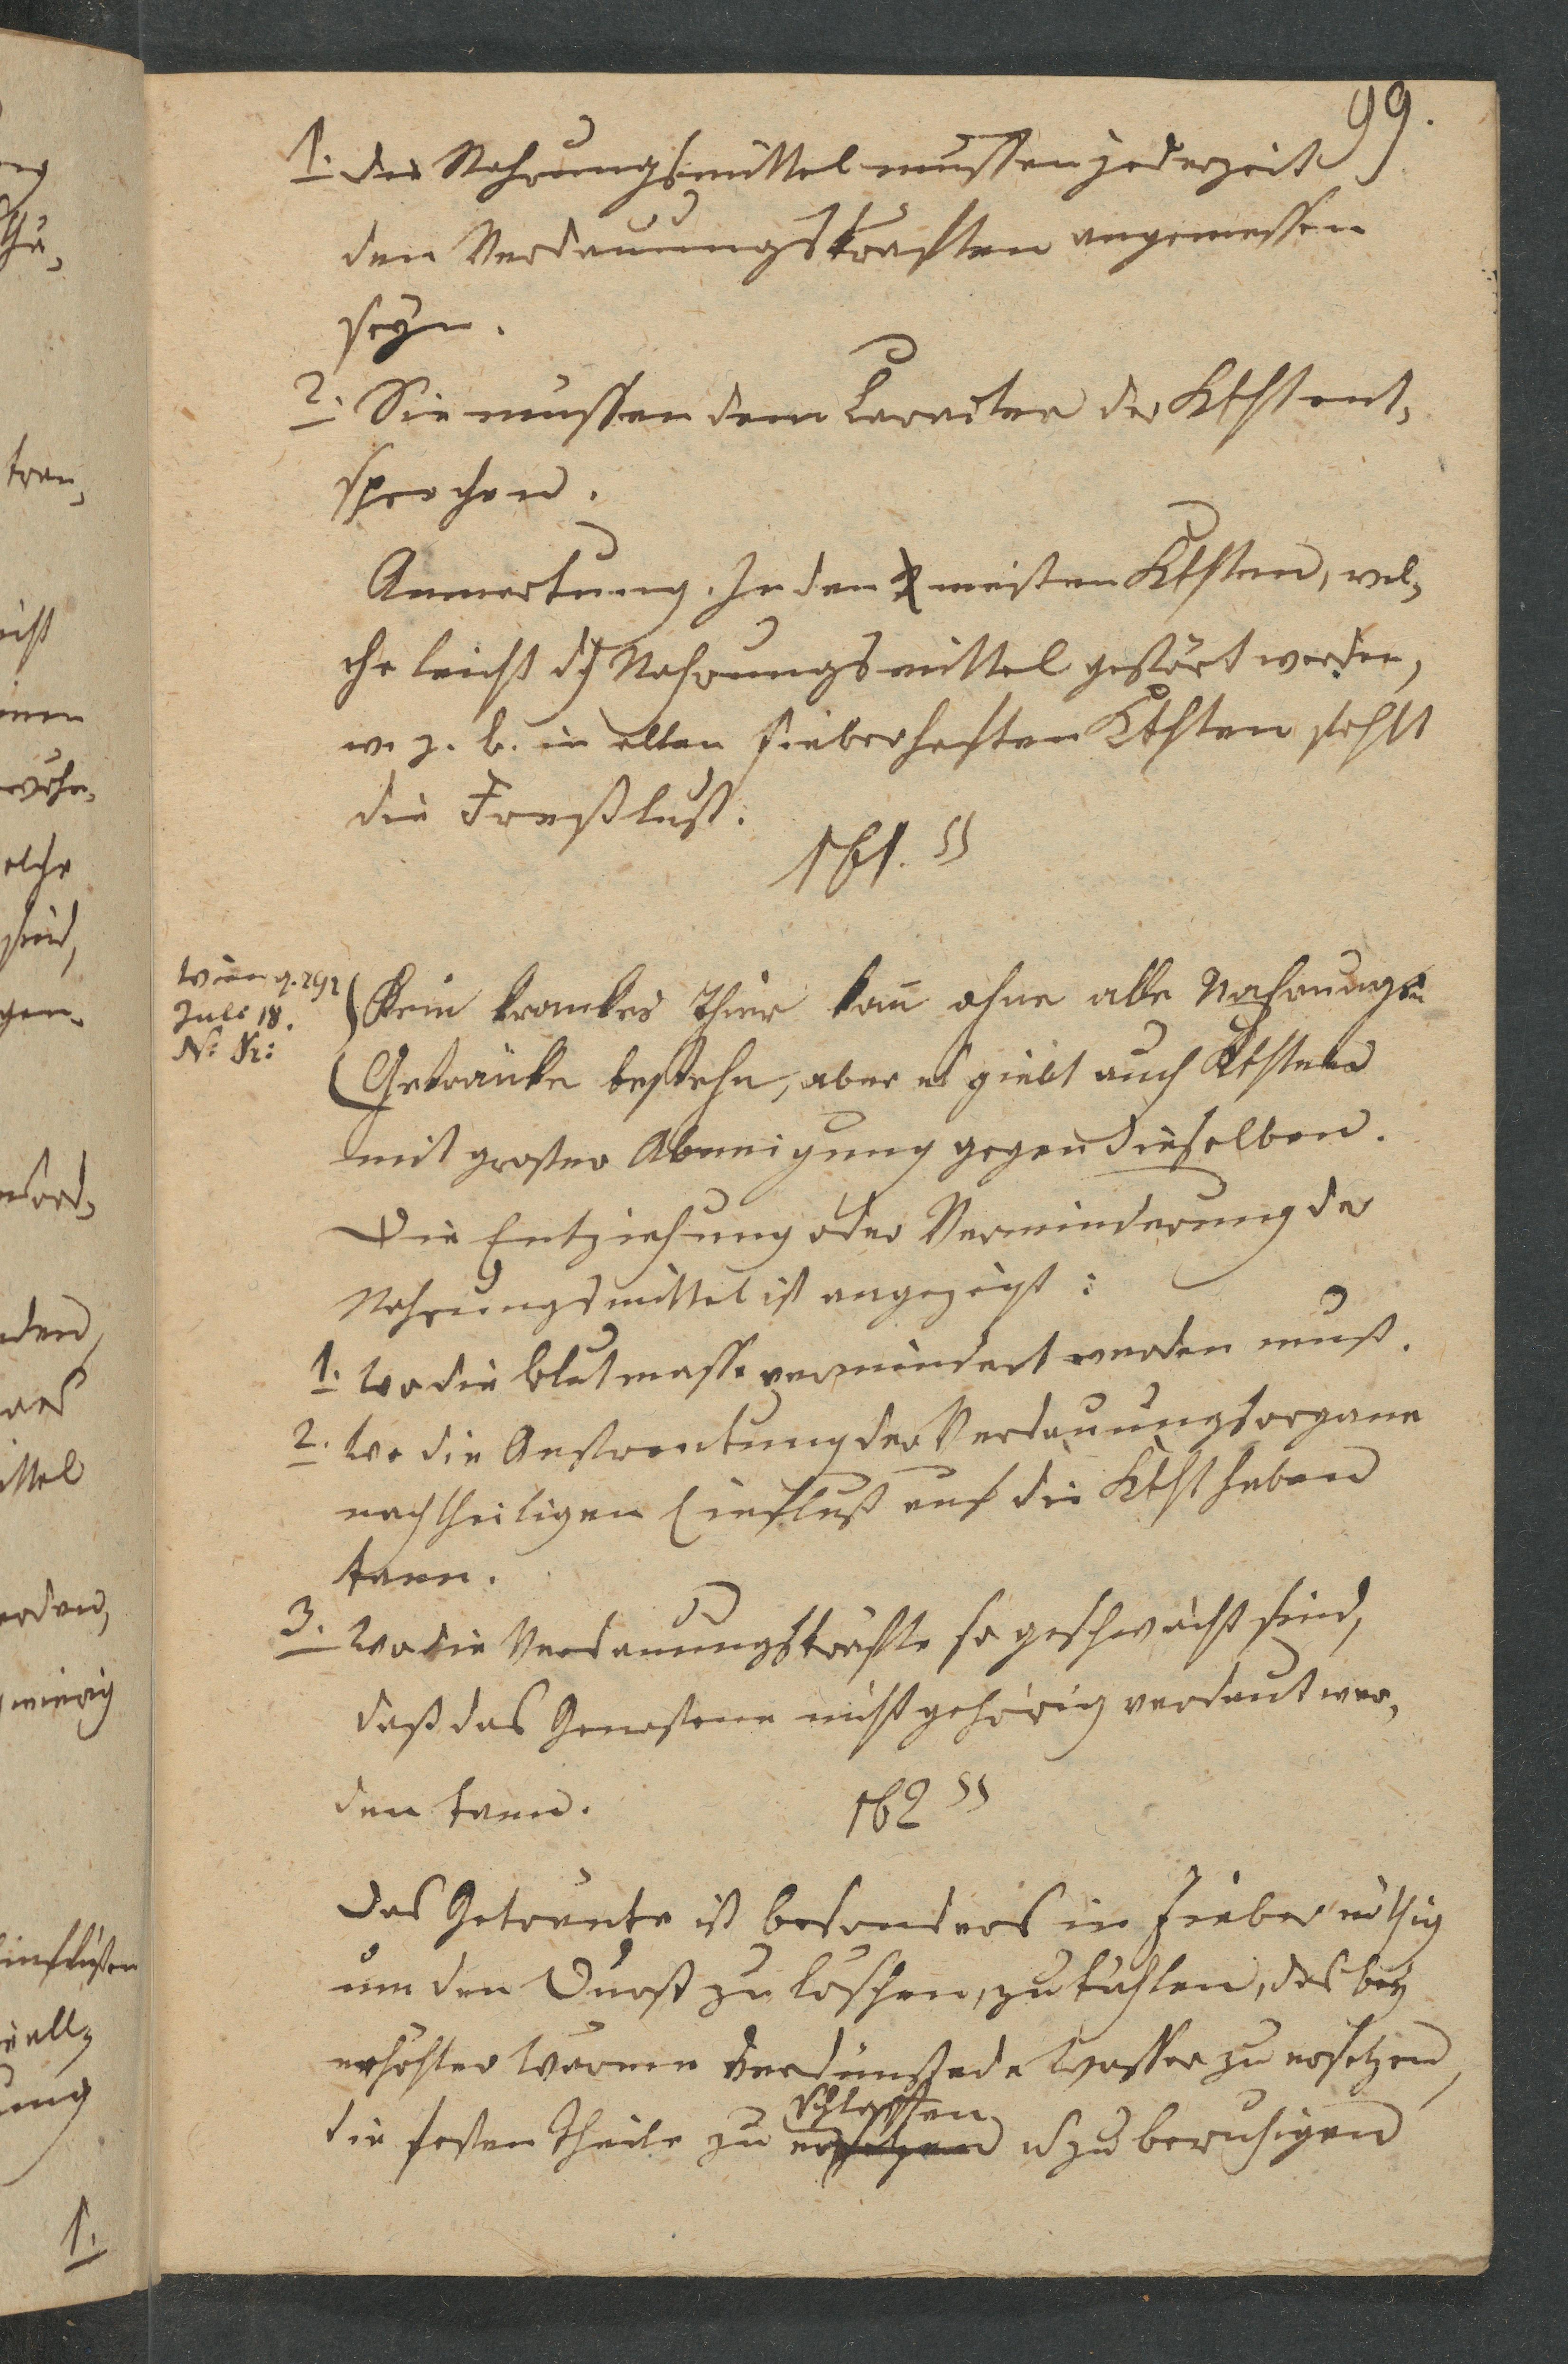 99.
1. die Nahrungsmittel mussen jederzeit
den Verdauungskraften angemessen
seyn.
2. Sie mussen dem Caracter der Kkht ent,
sprechen.
Anmerkung. In den meisten Kkhten, wel,
che leicht dh Nahrungsmittel gestört werden,
w. z. b. in allen fieberhaften Kkhten fehlt
die Freßlust.
161. §§
Juli 18.
Kein krankes Thier kan̄ ohne alle Nahrungs u
Getränke bestehn, aber es giebt auch Kkhten
mit grosser Abneigung gegen dieselben.
Die Entziehung oder Verminderung der
Nahrungsmittel ist angezeigt:
1. wo die blutmasse vermindert werden muß.
2. wo die Anstrenkung der Verdauungsorgane
nachtheiligen Einfluß auf die Kkht haben
kann.
3. wo die Verdauungskräfte so geschwächt sind,
daß das Genossene nicht gehörig verdaut wer,
den kann.
162 §§
Das Getränke ist besonders in Fieber nöthig
um den Durst zu löschen, zu kühlen, das bey
erhöhter Wärme verdünstede Wasser zu ersetzen,
schlaffen
die festen Theile zu ersetzen u zu beruhigen